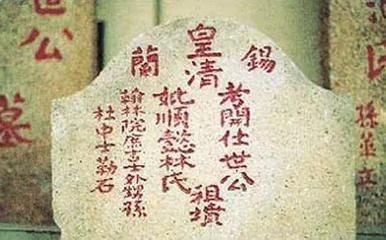 錫蘭
皇清
考開仕世公
妣順懿林氏
祖墳
翰林院庶吉士外甥孫
杜中士勒石
世公
墓